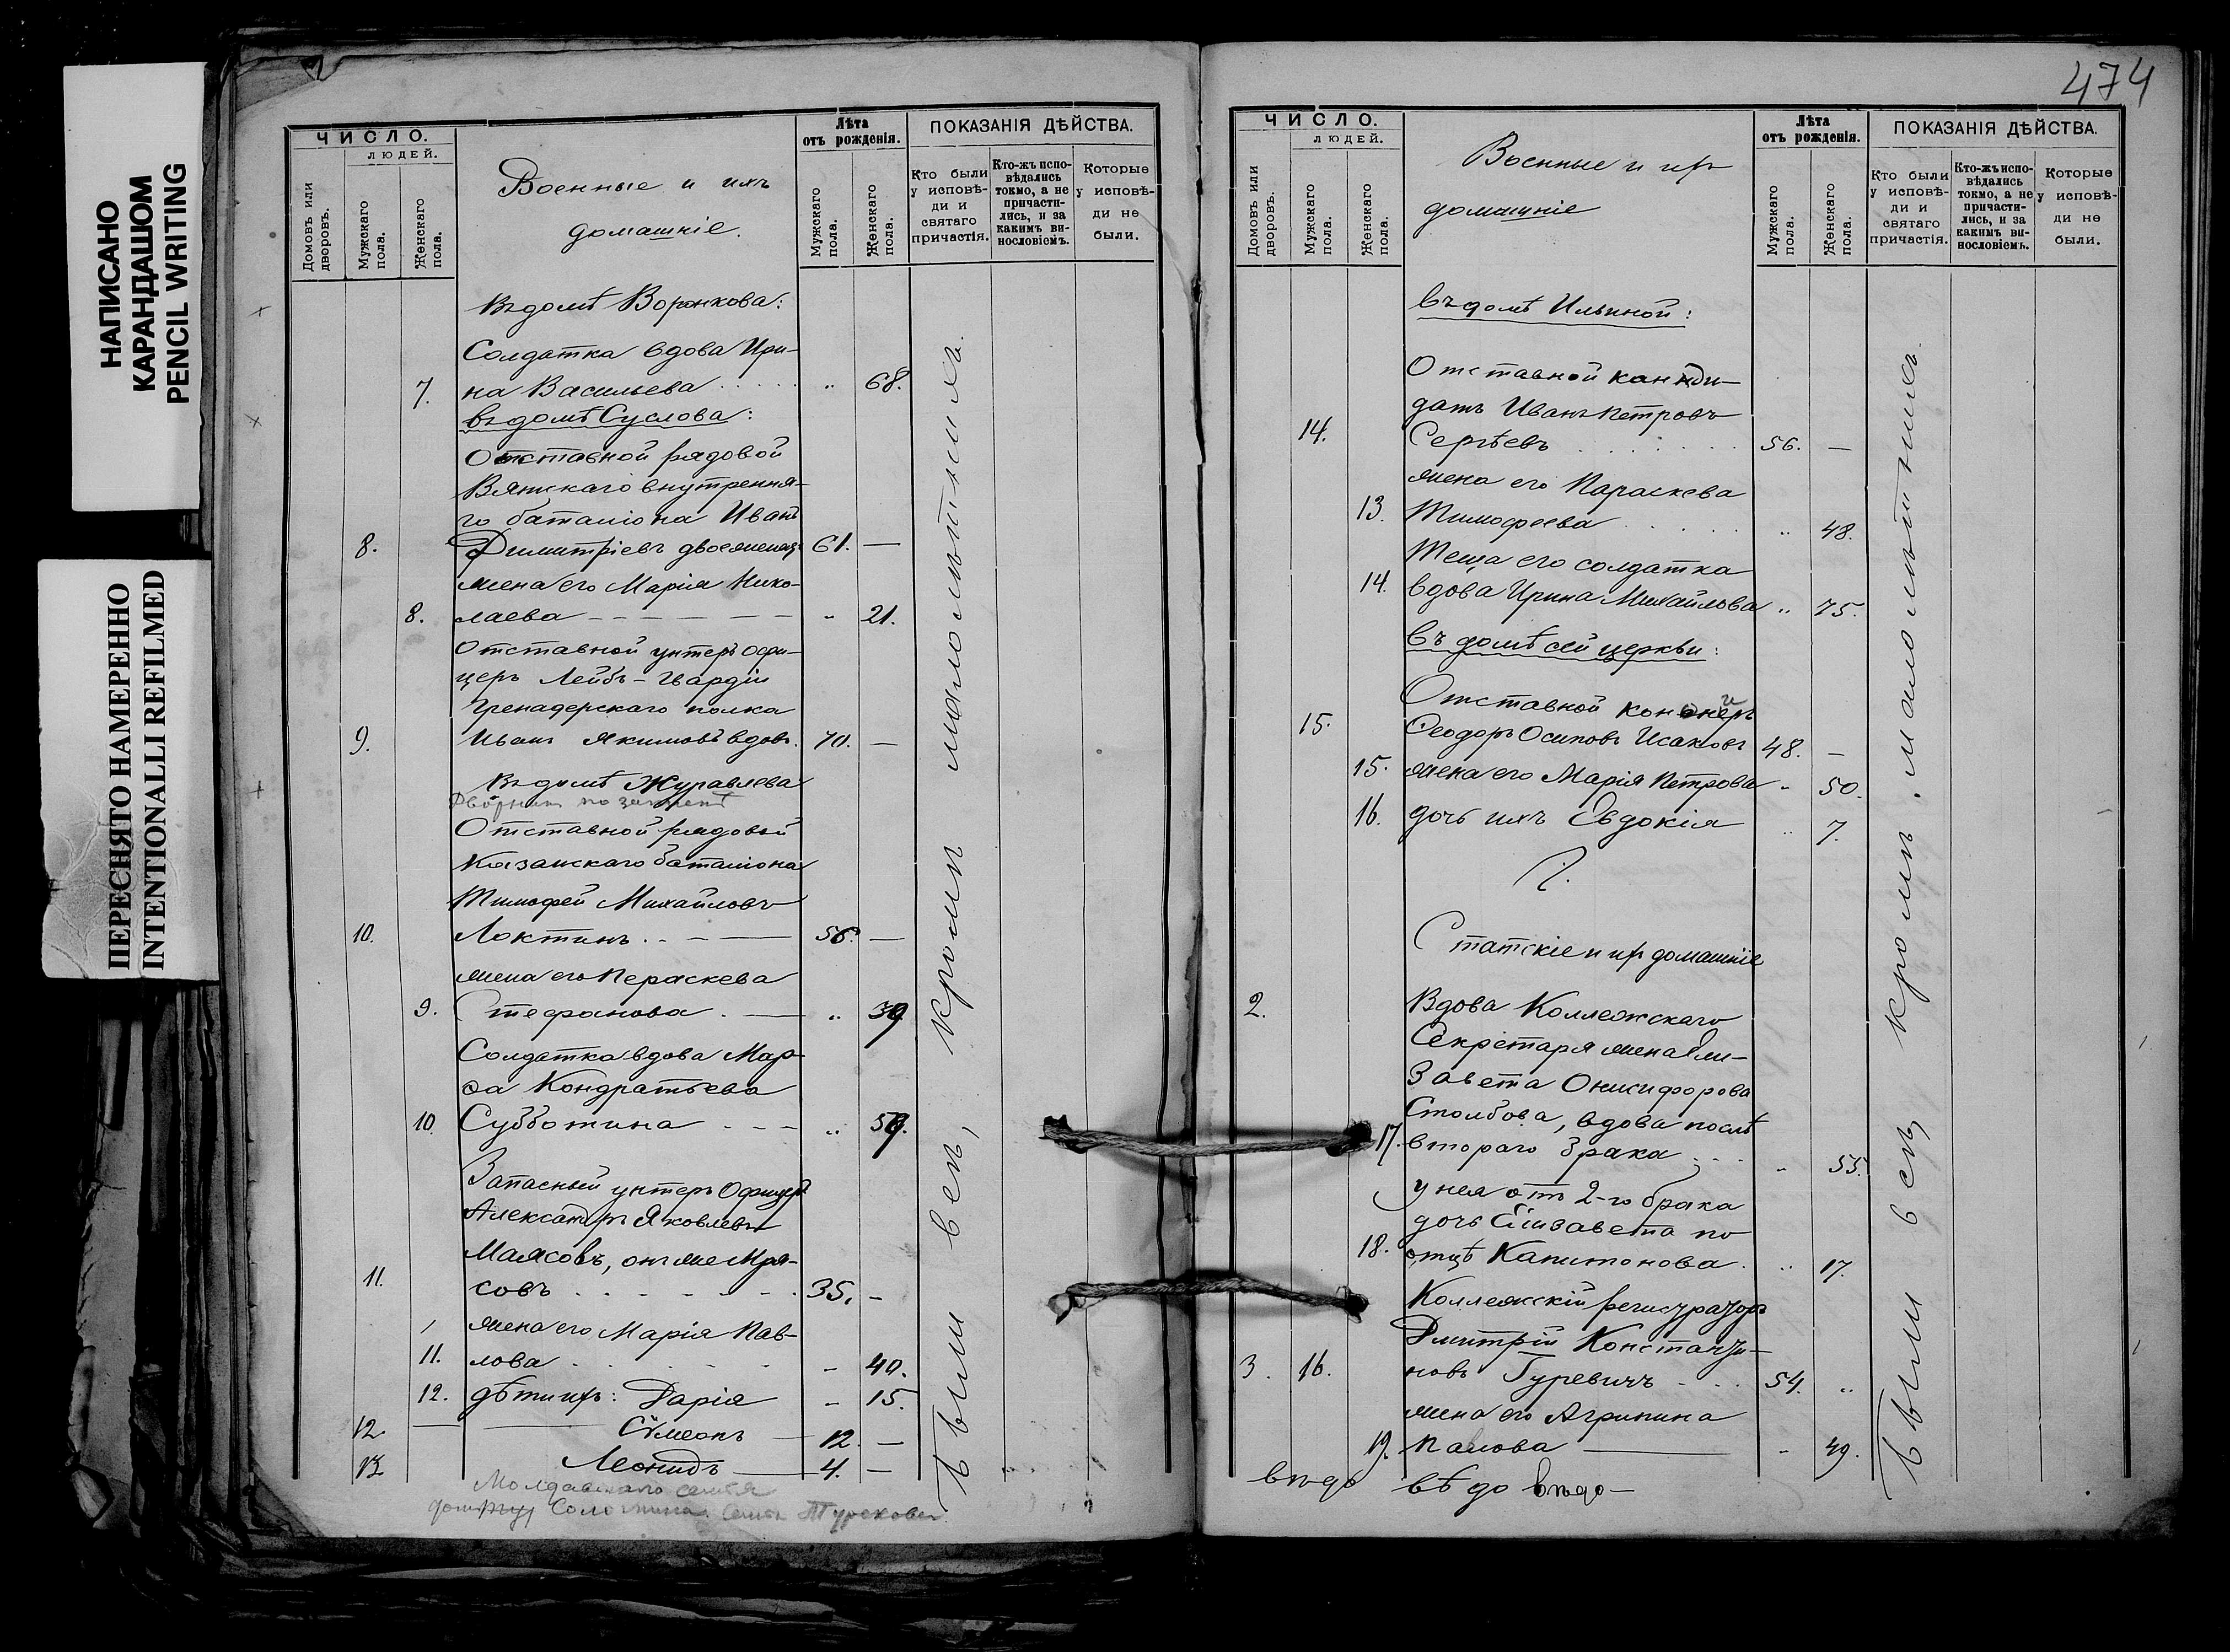 НАПИСАНО
КАРАНДАШОМ
PENCIL WRITING
ПЕРЕСНЯТО НАМЕРЕННО
INTENTIONALLI REFILMED
ЧИСЛО.
ЛЮДЕЙ.
Домовъ или дворовъ.
Мужскаго пола.
Женскаго пола.
Военные и ихъ
домашніе.
Лѣта
отъ рожденія.
Мужскаго пола.
Женскаго пола.
ПОКАЗАНІЯ ДѢЙСТВА.
Кто были у исповѣди и святаго причастія.
Кто-жъ исповѣдались токмо, а не причастились, и за какимъ винословіемъ.
Которые у исповѣди не были.
Въ домѣ Воронкова:
Солдатка вдова Ири-
7. на Васильева ..... „ 68.
въ домѣ Суслова:
Отставной рядовой
Вятскаго внутрення-
го баталіона Иванъ
8. Димитріевъ двоежен. 61. —
жена его Марія Нико-
8. лаева — — — — „ 21.
Отставной унтеръ офи-
церъ Лейбъ-Гвардіи
Гренадерскаго полка
9. Иванъ Якимовъ вдовъ. 70. —
Въ домѣ Журавлева
Отставной рядовой
Казанскаго баталіона
Тимофей Михайловъ
10. Локтинъ. — — 56. —
жена его Пераскева
9. Стефанова. — „ 39
Солдатка вдова Мар-
фа Кондратьева
10. Субботина — — — „ 59.
Запасный унтеръ Офицеръ
Александръ Яковлевъ
Маясовъ, онъ же Мря-
11. совъ ...... 35. —
жена его Марія Пав-
11. лова ...... „ 40.
12. дѣти ихъ: Дарія „ 15.
12. Сѵмеонъ — 12. —
13. Леонидъ — 4. —
Молдавскаго семья
Солопина семья Турекова
Были всѣ, кромѣ малолѣтнихъ.
474
ЧИСЛО.
ЛЮДЕЙ.
Домовъ или дворовъ.
Мужскаго пола.
Женскаго пола.
Военные и ихъ
домашніе
Лѣта
отъ рожденія.
Мужскаго пола.
Женскаго пола.
ПОКАЗАНІЯ ДѢЙСТВА.
Кто были у исповѣди и святаго причастія.
Кто-жъ исповѣдались токмо, а не причастились, и за какимъ винословіемъ.
Которые у исповѣди не были.
Въ домѣ Ильиной:
Отставной канди-
датъ Иванъ Петровъ
14. Сергѣевъ ....... 56. —
жена его Параскева
13. Тимофеева ..... „ 48.
Теща его солдатка
14. вдова Ирина Михайлова „ 75.
Въ домѣ сей церкви:
Отставной конониръ
15. Ѳеодоръ Осиповъ Исаковъ 48. —
15. жена его Марія Петрова „ 50.
16. дочь ихъ Евдокія „ 7.
Статскіе и ихъ домашніе
2. Вдова Коллежскаго
Секретаря жена Ели-
завета Онисифорова
Столбова, вдова послѣ
17. втораго брака ... „ 55.
у нея отъ 2-го брака
дочь Елизавета по
18. отцѣ Капитонова. „ 17.
Коллежскій регистраторъ
Дмитрій Константи-
3. 16. новъ Гуревичъ ... 54. „
жена его Агрипина
19. Павлова — „ 49.
вѣдо вѣдо вѣдо—
Были всѣ, кромѣ малолѣтнихъ.